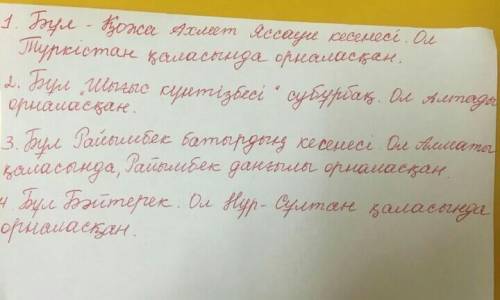 1. Бұл - Қожа Ахмет Яссауи кесенесі. Ол
Түркістан қаласында орналасқан.
2. Бұл „Шығыс күнтізбесі" субұрбақ. Ол Алтады
орналасқан.
3. Бұл Райымбек батырдың кесенесі. Ол Алматы
қаласында, Райымбек даңғылы орналасқан.
4 Бұл Бәйтерек. Ол Нұр-Султан қаласында
орналасқан.